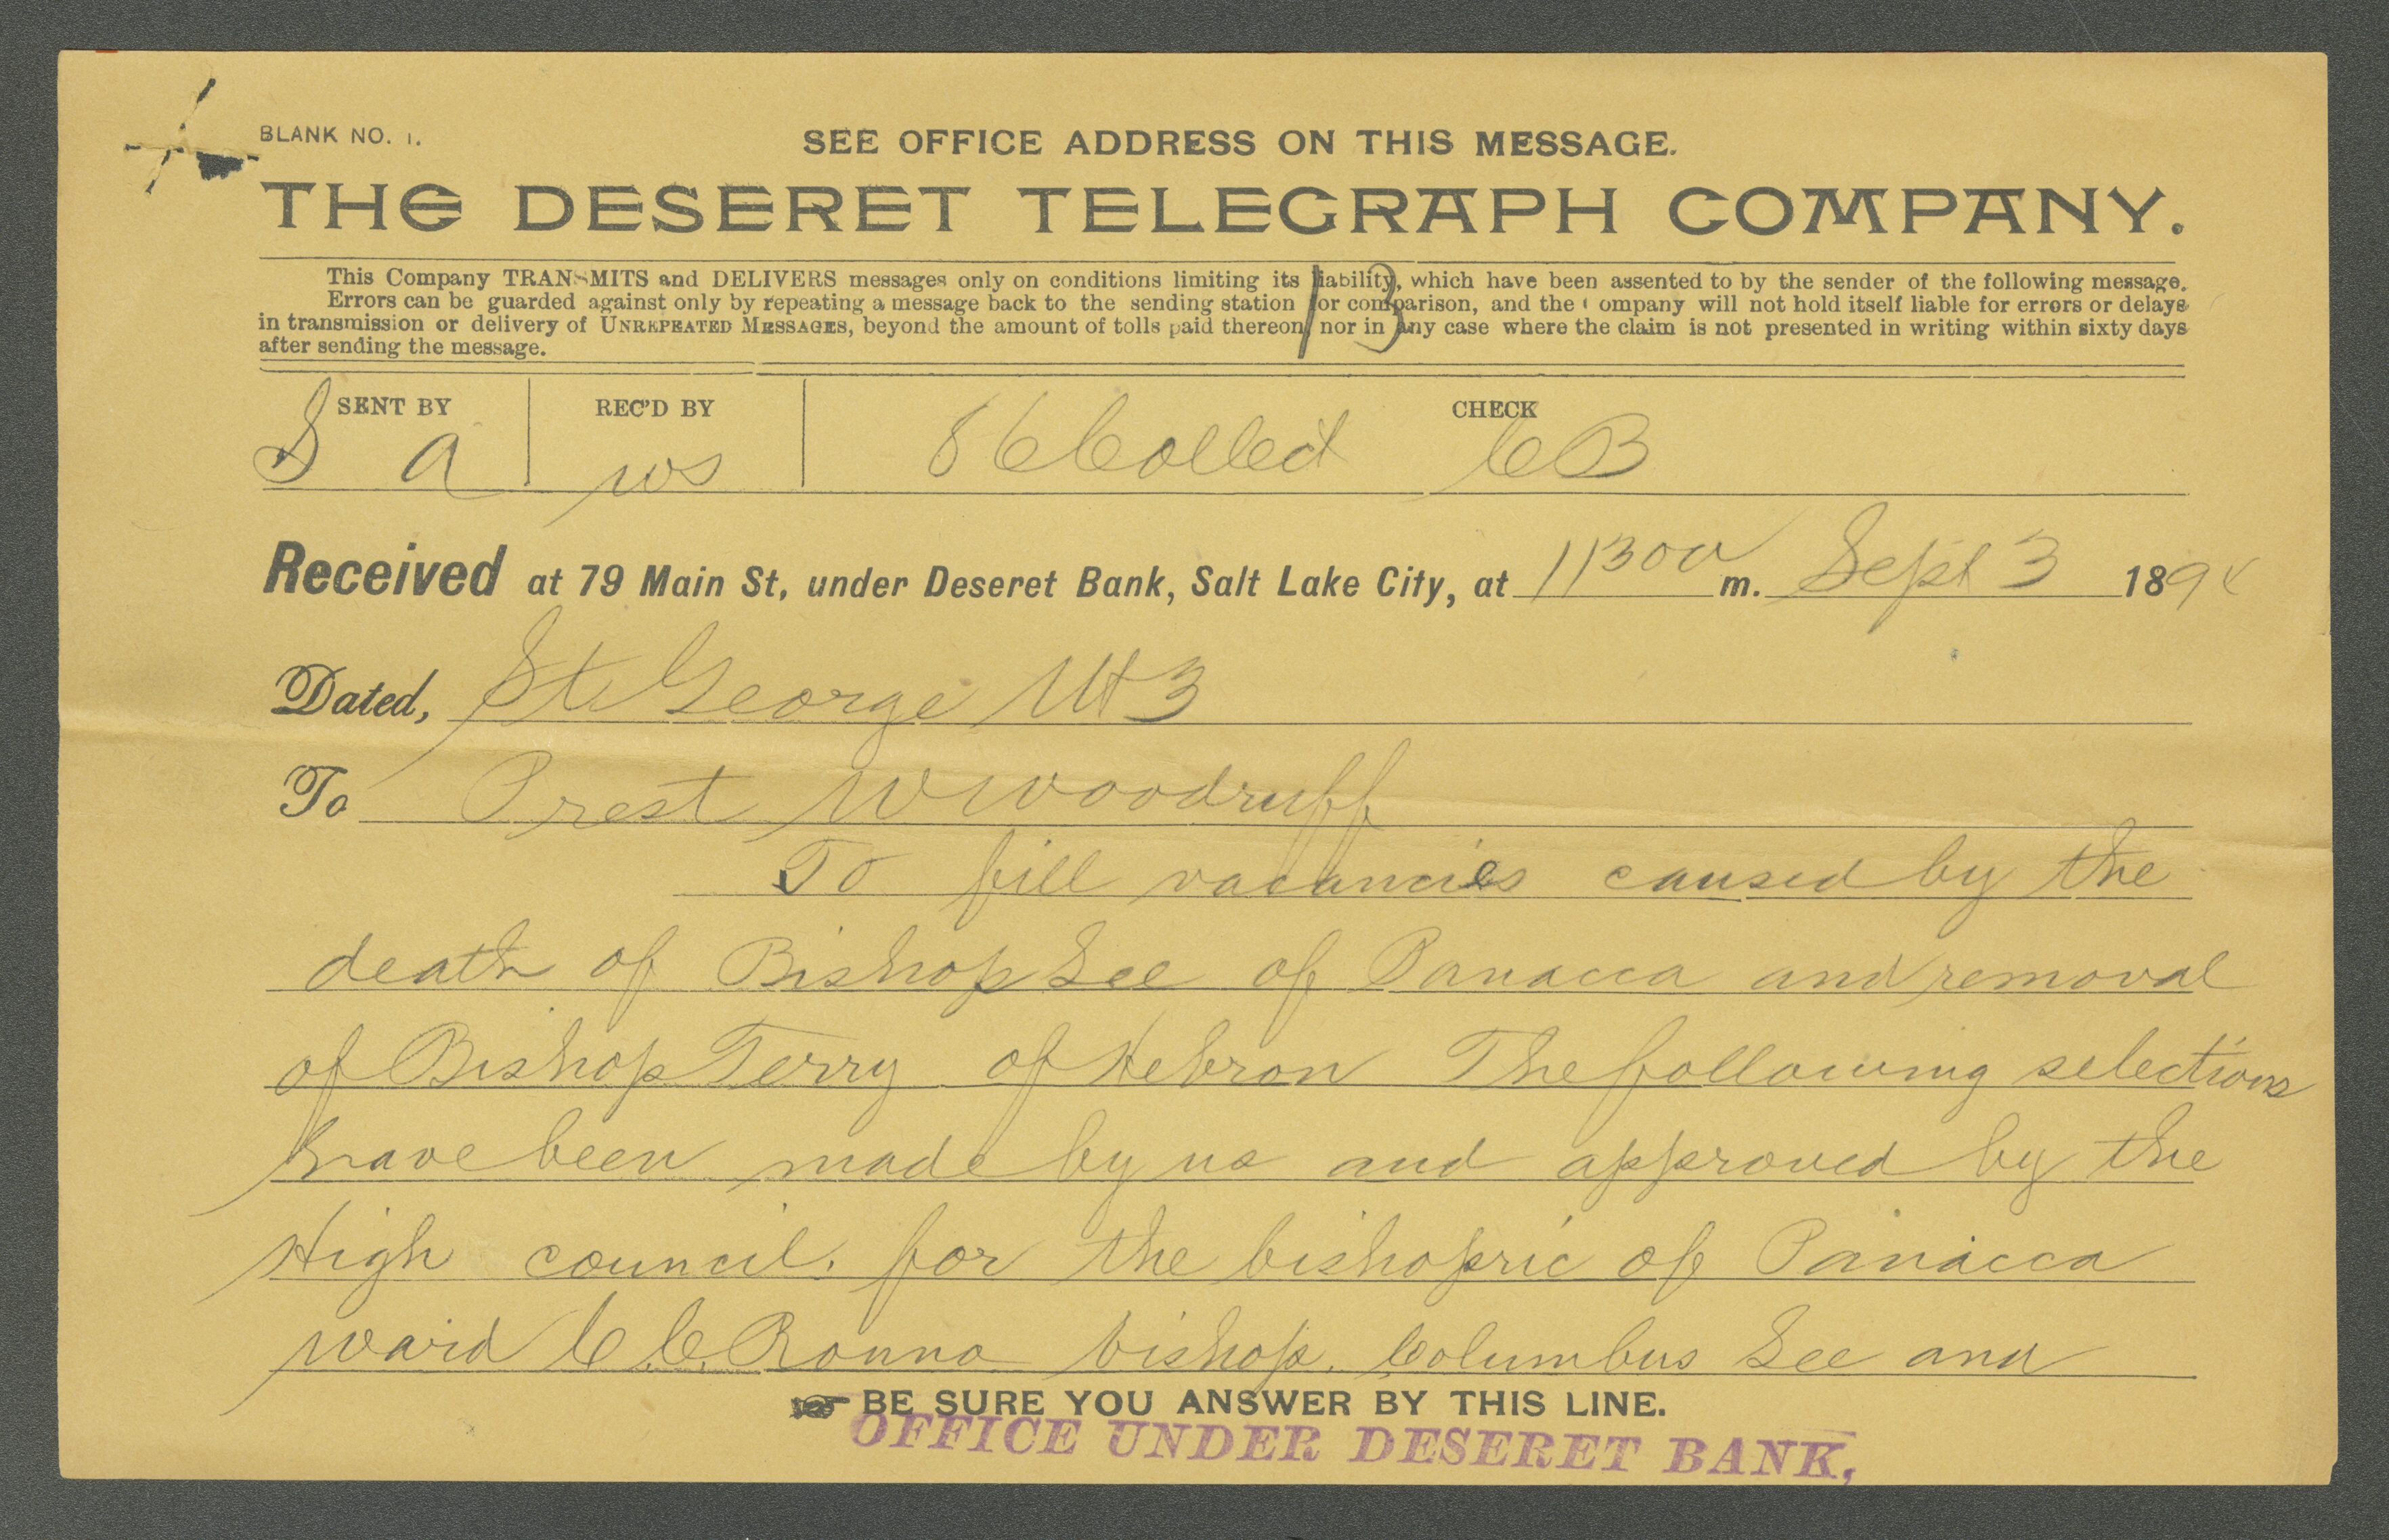 BLANK NO. 1.
SEE OFFICE ADDRESS ON THIS MESSAGE.
THE DESERET TELEGRAPH COMPANY.
This Company TRANSMITS and DELIVERS messages only on conditions limiting its liability, which have been assented to by the sender of the following message.
Errors can be guarded against only by repeating a message back to the sending station for comparison, and the Company will not hold itself liable for errors or delays
in transmission or delivery of UNREPEATED MESSAGES, beyond the amount of tolls paid thereon, nor in any case where the claim is not presented in writing within sixty days
after sending the message.
SENT BY REC'D BY CHECK
S a ws 86 Collect CB
Received at 79 Main St, under Deseret Bank, Salt Lake City, at 1130 a m. Sept 3 1894
Dated, St George Ut 3
To Prest W Woodruff
To fill vacancies caused by the
death of Bishop Lee of Panacca and removal
of Bishop Terry of Hebron The following selections
have been made by us and approved by the
High council. for the bishopric of Panacca
ward C.C. Ronno bishop. Columbus Lee and
BE SURE YOU ANSWER BY THIS LINE.
OFFICE UNDER DESERET BANK,